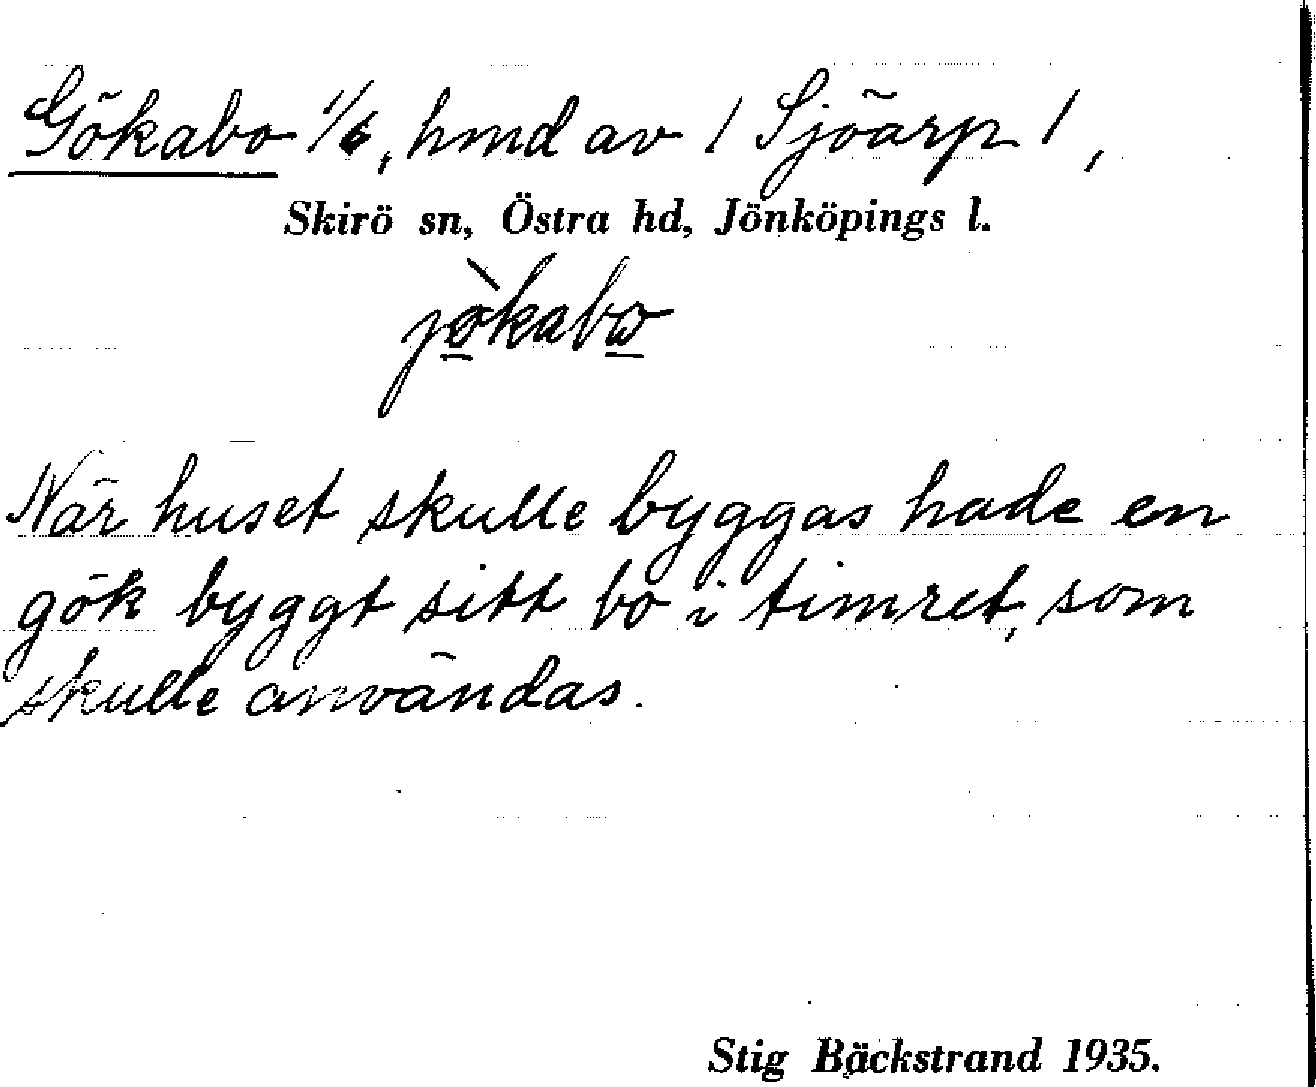 Gökabo 1/6, hmd av / Sjöarp /,
Skirö sn, Östra hd, Jönköpings l.
jökabo
När huset skulle byggas hade en
gök byggt sitt bo i timret, som
skulle användas.
Stig Bäckstrand 1935.